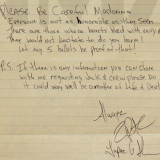 PLEASE Be Careful Madonna
Everyone is not as honorable as they seem
There are those whose hearts bleed with envy &
They would not hesitate to do you harm
Let my 5 bullets be proof of that!
P.S. If there is any information you can share
with me regarding Jack & crew please do
it could very well be a matter of life & death
Always